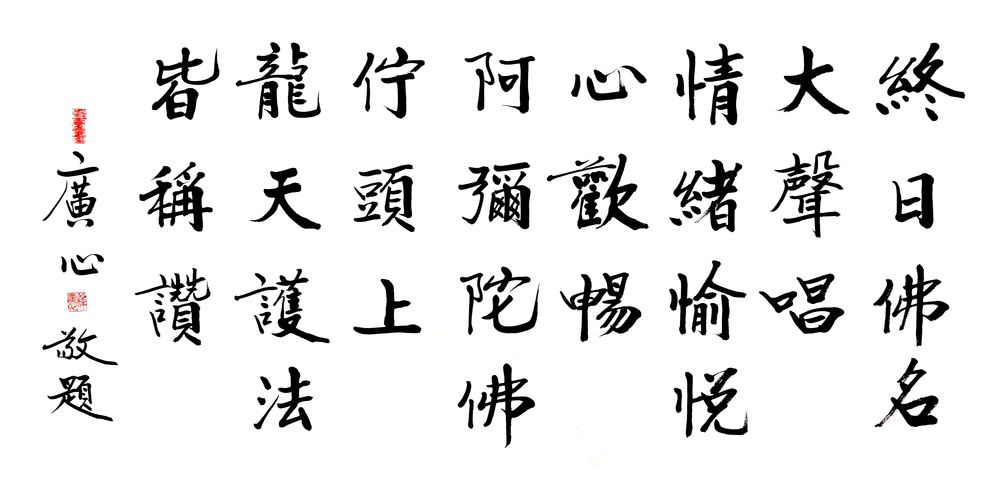 終日佛名
大聲唱
情緒愉悅
心歡暢
阿彌陀佛
佇頭上
龍天護法
皆稱讚
廣心敬題